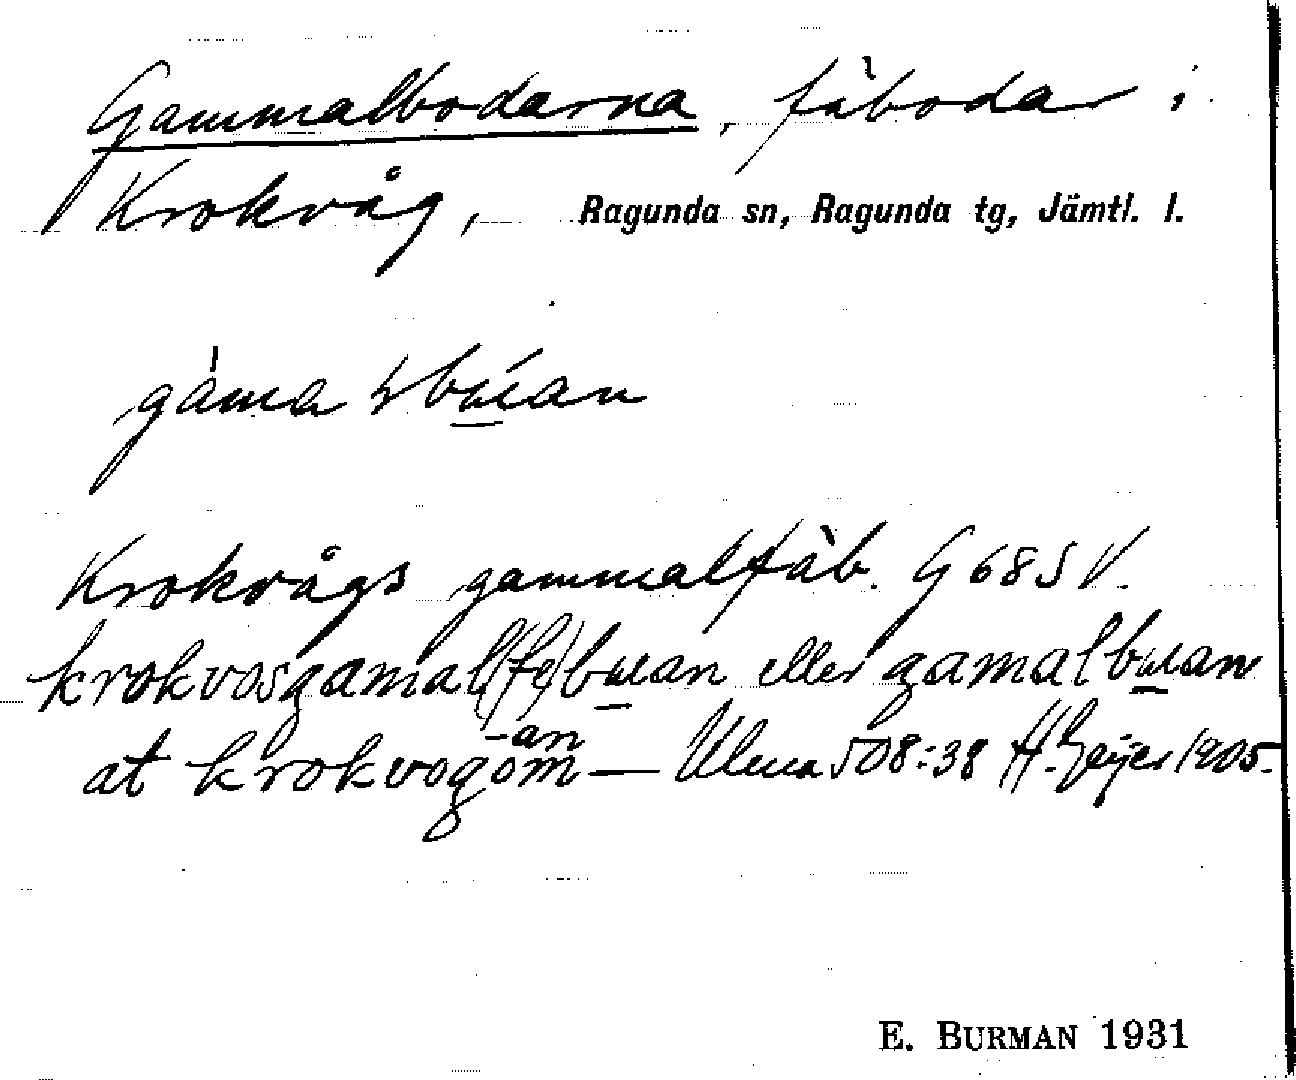 Gammalbodarna, fäbodar i
Krokvåg, Ragunda sn, Ragunda tg, Jämtl. l.
Krokvågs gammalfäb. G 68 S V.
krokvosgamal(fe)buan eller gamalbuan
-an
at krokvogom — Ulma 508:38 H. Geijer 1905.
E. BURMAN 1931